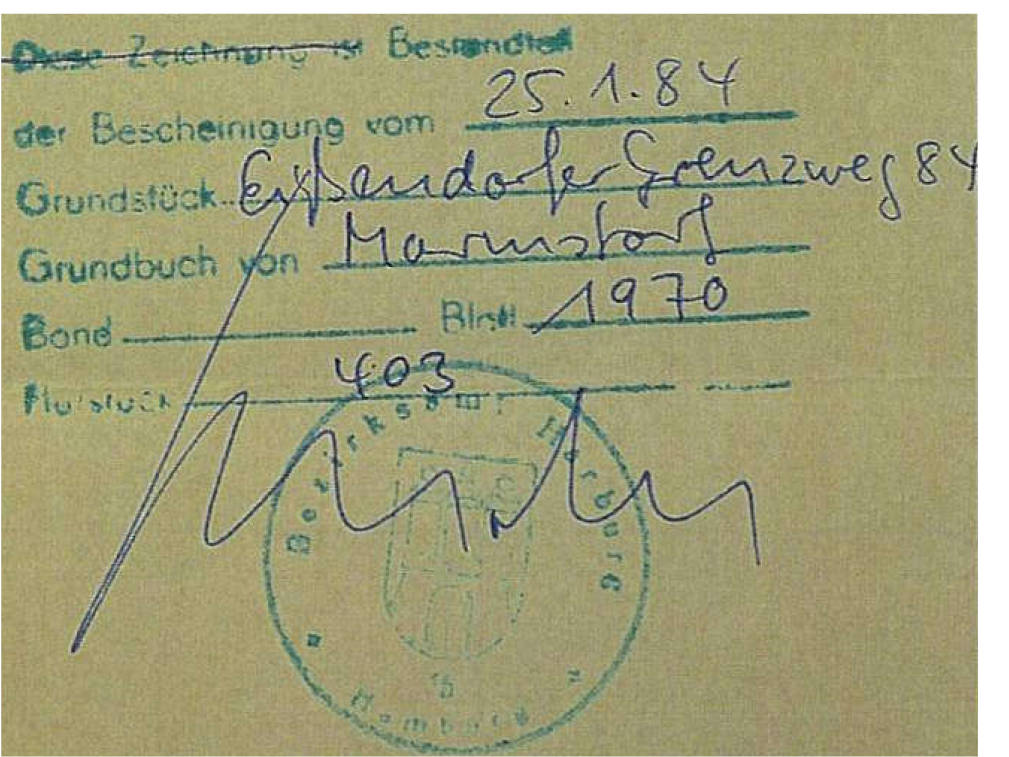 Diese Zeichnung ist Bestandteil
der Bescheinigung vom 25.1.84
Grundstück Eißendorfer Grenzweg 84
Grundbuch von Marmstorf
Band Blatt 1970
Flurstück 403
Bezirksamt Harburg
Hamburg